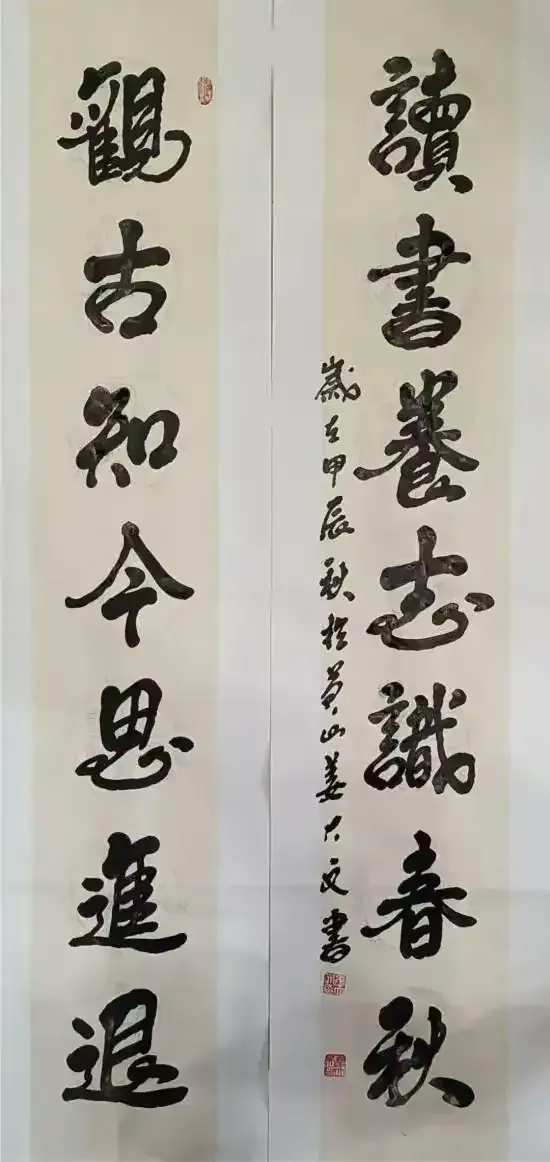 觀古知今思進退
讀書養志識春秋
歲在甲辰秋於黄山姜大文書